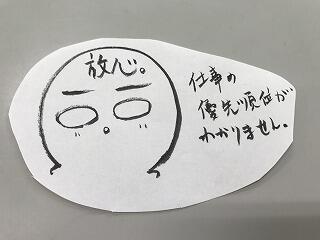 放心。
仕事の
優先順位が
わかりません。